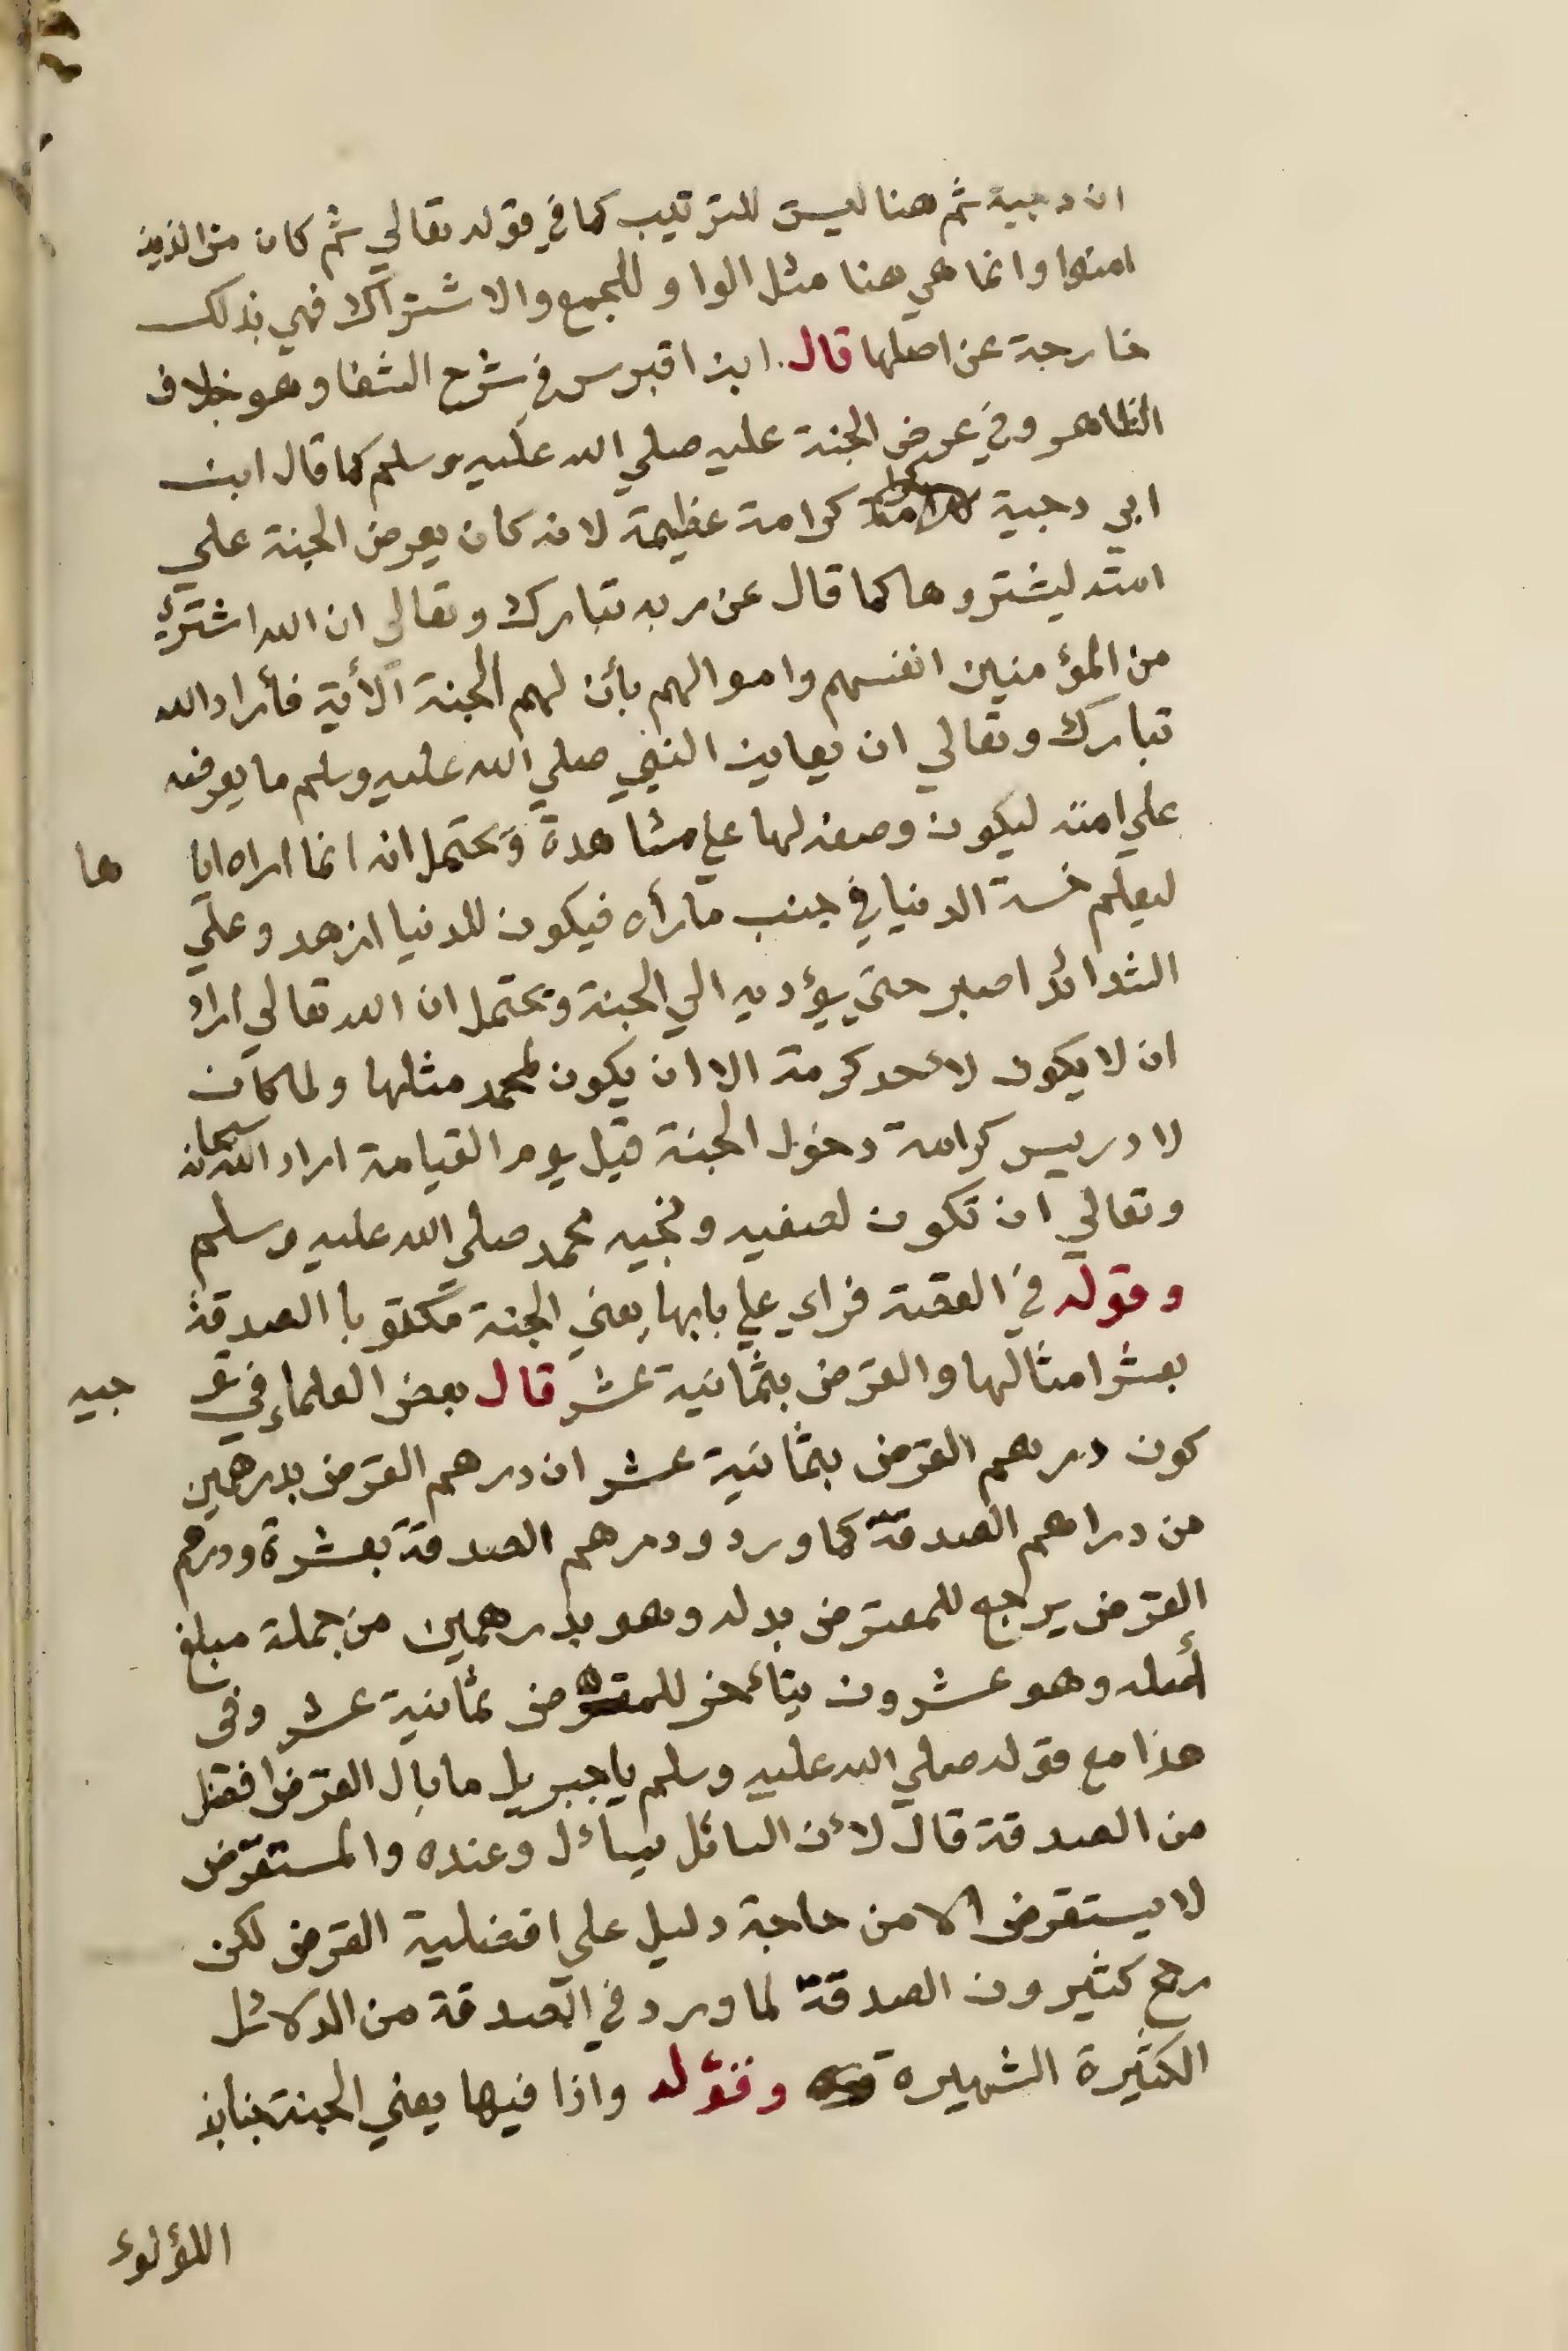 ان دحية ثم هنا ليست للترتيب كما في قوله تعالي ثم كان من الذين
امنوا وانما هي هنا مثل الواو للجمع والاشتراك فهي بذلك
خارجة عن اصلها قال ابن اقبرس في شرح الشفا وهو خلاف
الظاهر وفي عرض الجنة عليه صلي الله عليه وسلم كما قال ابن
ابي دحية كرامة عظيمة لانه كان يعرض الجنة علي
امته ليشتروها كما قال عن ربه تبارك وتعالي ان الله اشتري
من المؤمنين انفسهم واموالهم بأن لهم الجنة الأية فأراد الله
تبارك وتعالي ان يعاين النبي صلي الله عليه وسلم ما يعرضه
علي امته ليكون وصفه لها علي مشاهدة ويحتمل انه انما اراه ايا ها
ليعلم خسة الدنيا في جنب مارأه فيكون للدنيا ازهد وعلي
الشدائد اصبر حتي يؤديه الي الجنة ويحتمل ان الله تعالي اراد
ان لا يكون لأحد كرمة الا ان يكون لمحمد مثلها ولما كان
لادريس كرامة دخول الجنة قبل يوم القيامة اراد الله سبحانه
وتعالي ان تكون لصفيه ونجيه محمد صلي الله عليه وسلم
وقوله في القصة فراي علي بابها يعني الجنة مكتوبا الصدقة
بعشر امثالها والقرض بثمانية عشر قال بعض العلماء في تو جيه
كون درهم القرض بثمانية عشر ان درهم القرض بدرهمين
من دراهم الصدقة كما ورد ودرهم الصدقة بعشرة ودرهم
القرض يرجع للمقترض بدله وهو بدرهمين من جملة مبلغ
أصله وهو عشرون يتأخر للمقرض ثمانية عشر وفي
هذا مع قوله صلي الله عليه وسلم يا جبريل ما بال القرض افضل
من الصدقة قال لأن السائل يسأل وعنده والمستقرض
لا يستقرض الا من حاجة دليل علي افضلية القرض لكن
رجح كثيرون الصدقة لما ورد في الصدقة من الدلائل
الكثيرة الشهيرة وقؤله واذا فيها يعني الجنة جنابذ
اللؤلوء